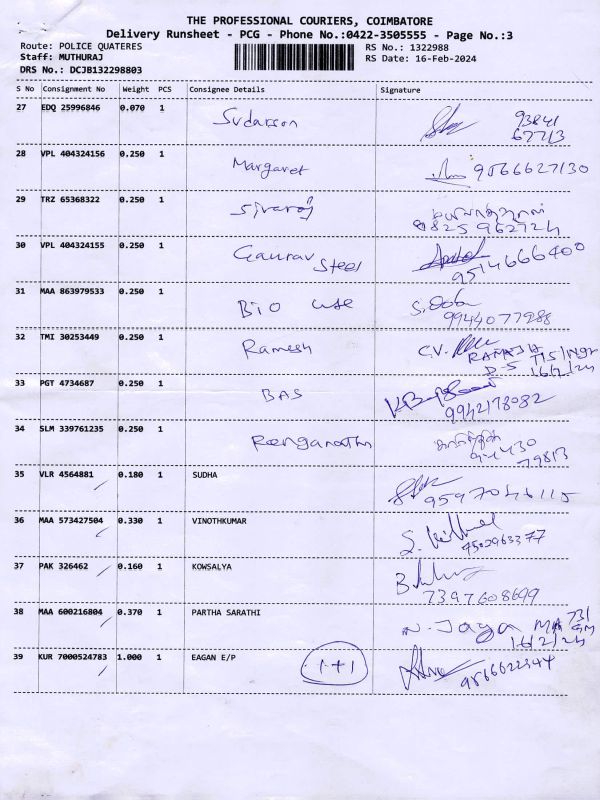 THE PROFESSIONAL COURIERS, COIMBATORE
Delivery Runsheet - PCG - Phone No.:0422-3505555 - Page No.:3
Route: POLICE QUATERES RS No.: 1322988
Staff: MUTHURAJ RS Date: 16-Feb-2024
DRS No.: DCJB132298803
S No Consignment No Weight PCS Consignee Details Signature
27 EDQ 25996846 0.070 1 Sudarson 93841
67713
28 VPL 404324156 0.250 1 Margaret 9566627130
29 TRZ 65368322 0.250 1 Sivaraj
9825962724
30 VPL 404324155 0.250 1 Gaurav Steel
9514666400
31 MAA 863979533 0.250 1 Bio use
9944077988
32 TMI 30253449 0.250 1 Ramesh C.V.
16/2/24
33 PGT 4734687 0.250 1 BAS
9942178082
34 SLM 339761235 0.250 1 Renganathan
94430
79813
35 VLR 4564881 0.180 1 SUDHA
9597046115
36 MAA 573427504 0.330 1 VINOTHKUMAR
7502963377
37 PAK 326462 0.160 1 KOWSALYA
7397608699
38 MAA 600216804 0.370 1 PARTHA SARATHI N. Jaya
16/2/24
39 KUR 7000524783 1.000 1 EAGAN E/P 1+1
9566622344